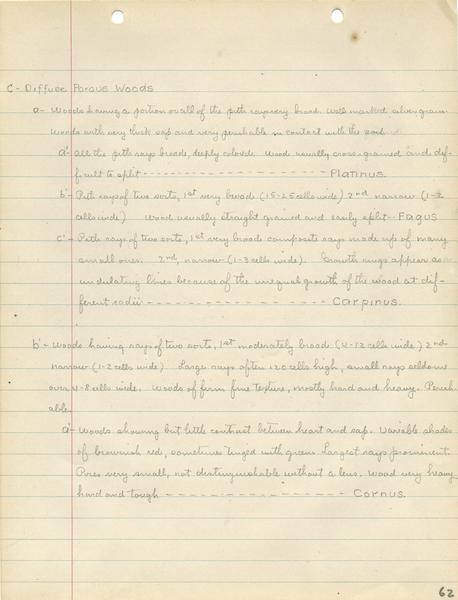 C - Diffuse Porous Woods
a - Woods having a portion or all of the pith rays very broad. Well marked silver grain.
Woods with very thick sap and very perishable in contact with the soil.
a' - All the pith rays broad, deeply colored. Wood usually cross-grained and dif-
ficult to split - - - - - - - - - - - - - - - - - - - - Platinus.
b' - Pith rays of two sorts, 1st very broad (15-25 cells wide) 2nd narrow (1-2
cells wide) Wood usually straight grained and easily split - Fagus
c' - Pith rays of two sorts, 1st very broad composite rays made up of many
small ones. 2nd, narrow (1-3 cells wide). Growth rings appear as
undulating lines because of the unequal growth of the wood at dif-
ferent radii - - - - - - - - - - - - - - - - - - Carpinus.
b' - Woods having rays of two sorts, 1st moderately broad (4-12 cells wide) 2nd
narrow (1-2 cells wide) Large rays often 120 cells high, small rays seldom
over 4-8 cells wide. Woods of firm fine texture, mostly hard and heavy. Perish-
able.
a' - Woods showing but little contrast between heart and sap. Variable shades
of brownish red, sometimes tinged with green. Largest rays prominent.
Pores very small, not distinguishable without a lens. Wood very heavy
hard and tough - - - - - - - - - - - - - - - - - - Cornus.
62